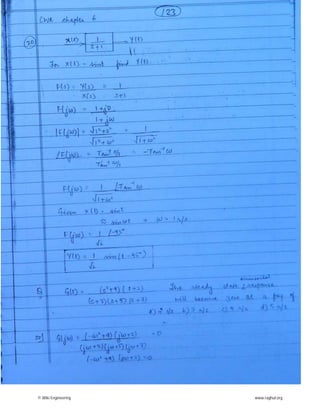 123
chapter 6
20 x(t) → 1/(s+1) → y(t)
For x(t) = sint find y(t)
F(s) = Y(s)/X(s) = 1/(s+1)
F(jω) = (1+j0)/(1+jω)
|F(jω)| = √(1²+0²)/√(1²+ω²) = 1/√(1+ω²)
/F(jω) = Tan⁻¹ 0/1 / Tan⁻¹ ω/1 = -Tan⁻¹ω
F(jω) = 1/√(1+ω²) /Tan⁻¹ω
Given x(t) = sint
= sinωt → ω = 1 r/s
F(jω) = 1/√2 /-45°
Y(t) = 1/√2 sin(t-45°)
G(s) = (s²+9)(s+2)/(s+3)(s+4)(s+7) The steady state sinusoidal response
will become zero at a freq of
b) 3 r/s c) 4 r/s
sol G(jω) = (-ω²+9)(jω+2)/(jω+3)(jω+4)(jω+7) = 0
(-ω²+9)(jω+2) = 0
© Wiki Engineering
www.raghul.org